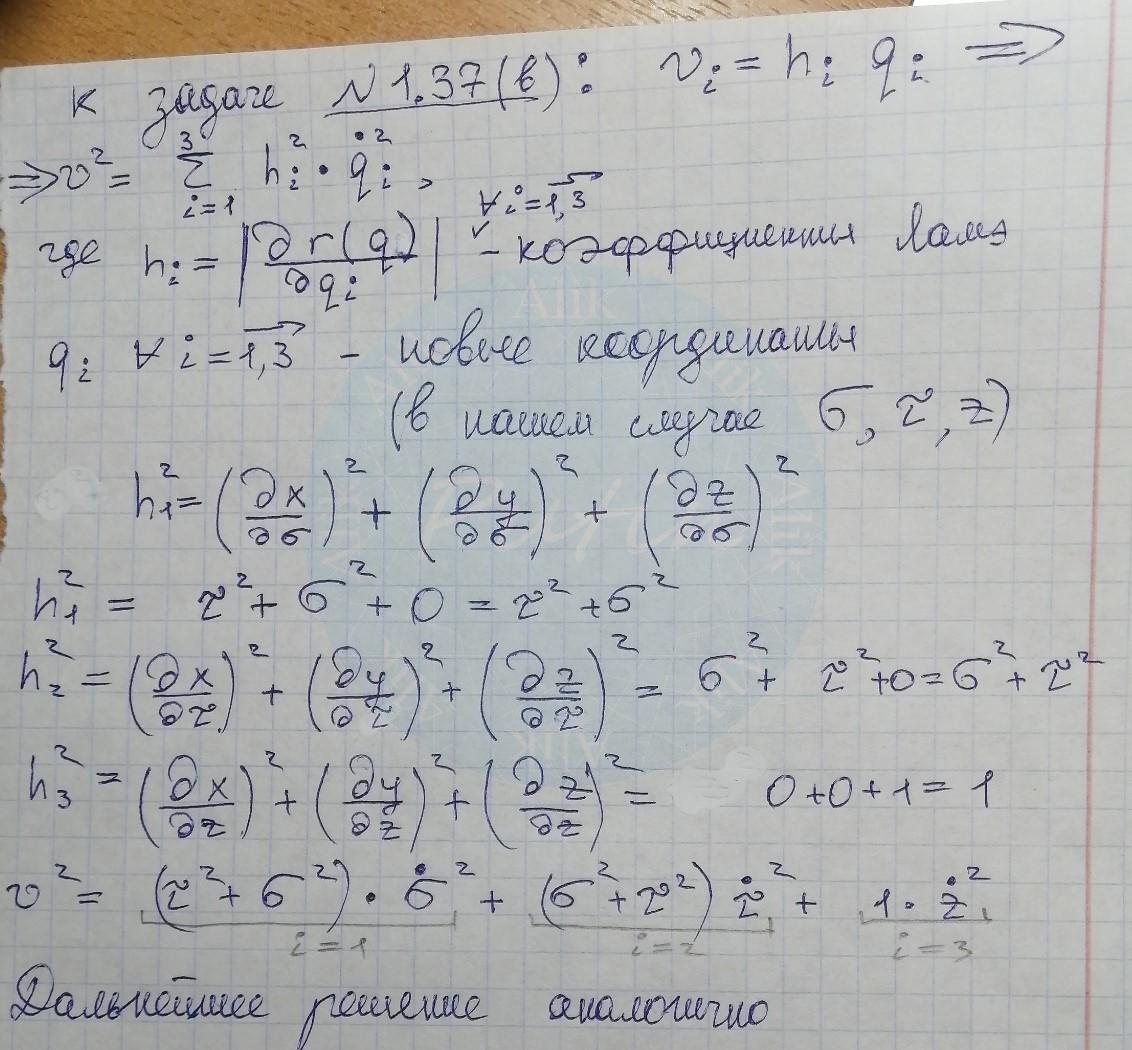 к задаче №1.37(в): vᵢ = hᵢ qᵢ ⇒
⇒ v² = Σ³ᵢ₌₁ hᵢ² · q̇ᵢ²,
∀i=1,3
где hᵢ = |∂r(q)/∂qᵢ| - коэффициенты Ламэ
qᵢ ∀i=1,3 - новые координаты
(в нашем случае σ, τ, z)
h₁² = (∂x/∂σ)² + (∂y/∂σ)² + (∂z/∂σ)²
h₁² = τ² + σ² + 0 = τ² + σ²
h₂² = (∂x/∂τ)² + (∂y/∂τ)² + (∂z/∂τ)² = σ² + τ² + 0 = σ² + τ²
h₃² = (∂x/∂z)² + (∂y/∂z)² + (∂z/∂z)² = 0 + 0 + 1 = 1
v² = (τ² + σ²) · σ̇² + (σ² + τ²) τ̇² + 1 · ż²
i=1 i=2 i=3
Дальнейшее решение аналогично
Alik